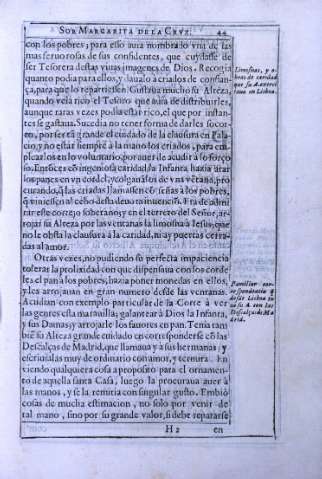 SOR MARGARITA DE LA CRVZ. 44
con los pobres; para esso auia nombrado vna de las
mas feruorosas de sus confidentes, que cuydasse de
ser Tesorera destas viuas imagenes de Dios. Recogia
quanto podia para ellos, y daualo a criados de confian-
ça, para que lo repartiessen. Gustaua mucho su Alteza,
quando veia rico el Tesoro que auia de distribuirles,
aunque raras vezes podia estar rico, el que por instan-
tes se gastaua. Sucedia no tener forma de darles socor-
ro, por ser tan grande el cuidado de la clausura en Pala-
cio, y no estar siempre a la mano los criados, para em-
plearlos en lo voluntario, por auer de acudir a lo forço-
so. Entōces cō ingeniosa caridad la Infanta, hazia atar
los panes en vn cordel, y colgandolos de vna vētana, pro
curando, q̄ las criadas llamassen cō señas a los pobres,
q̄ viniessen al cebo desta deuota inuencion. Era de admi
rar este correjo soberano, y en el terrero del Señor, ar-
rojar su Alteza por las ventanas la limosna a Iesus, que
no le obsta la clausura a la caridad, ni ay puertas cerra-
das al amor.
Otras vezes, no pudiendo su perfecta impaciencia
tolerar la prolixidad con que dispensaua con los corde
les el pan a los pobres, hazia poner monedas en ellos,
y les arrojauan en gran numero desde las ventanas.
Acudian con exemplo particular de la Corte à ver
las gentes esta marauilla; galantear à Dios la Infanta,
y sus Damas y arrojarle los fauores en pan. Tenia tam
biē su Alteza grande cuidado en corresponderse cō las
Descalças de Madrid, que llamaua y a sus hermanas: y
escriuialas muy de ordinario con amor, y ternura. En
viendo qualquiera cosa a proposito para el ornamen-
to de aquella santa Casa, luego la procuraua auer à
las manos, y se la remitia con singular gusto. Embiò
cosas de mucha estimacion, no solo por venir de
tal mano, sino por su grande valor, si debe repararse
H 2 en
Limosnas, y o-
bras de caridad
que su A. exerci-
taua en Lisboa.
Familiar cor-
respondencia q̄
desde Lisboa tu-
uo su A. con las
Descalças de Ma-
drid.